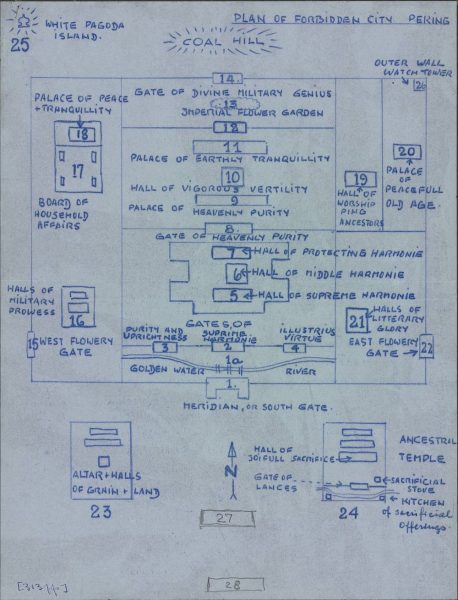 PLAN OF FORBIDDEN CITY PEKING
WHITE PAGODA
ISLAND.
25
COAL HILL
OUTER WALL
WATCH TOWER
26
14.
GATE OF DIVINE MILITARY GENIUS
13
IMPERIAL FLOWER GARDEN
12
PALACE OF PEACE
+ TRANQUILLITY
18
17
BOARD OF
HOUSEHOLD
AFFAIRS
11
PALACE OF EARTHLY TRANQUILLITY
10
HALL OF VIGOROUS VERTILITY
9
PALACE OF HEAVENLY PURITY
8
GATE OF HEAVENLY PURITY
19
HALL OF
WORSHIP
PING
ANCESTORS
20
PALACE
OF
PEACEFULL
OLD AGE.
7 HALL OF PROTECTING HARMONIE
6 HALL OF MIDDLE HARMONIE
5 HALL OF SUPREME HARMONIE
HALLS OF
MILITARY
PROWESS
16
15 WEST FLOWERY
GATE
21
HALLS OF
LITTERARY
GLORY
EAST FLOWERY
GATE
22
GATES OF
PURITY AND
UPRIGHTNESS
SUPREME
HARMONIE
ILLUSTRIUS
VIRTUE
3
2
4
1a
GOLDEN WATER RIVER
1.
MERIDIAN, OR SOUTH GATE.
ALTAR + HALLS
OF GRAIN + LAND
23
N
HALL OF
JOIFULL SACRIFICE
GATE OF
LANCES
ANCESTRIL
TEMPLE
SACRIFICIAL
STOVE
KITCHEN
of sacrificial
offerings
24
27
28